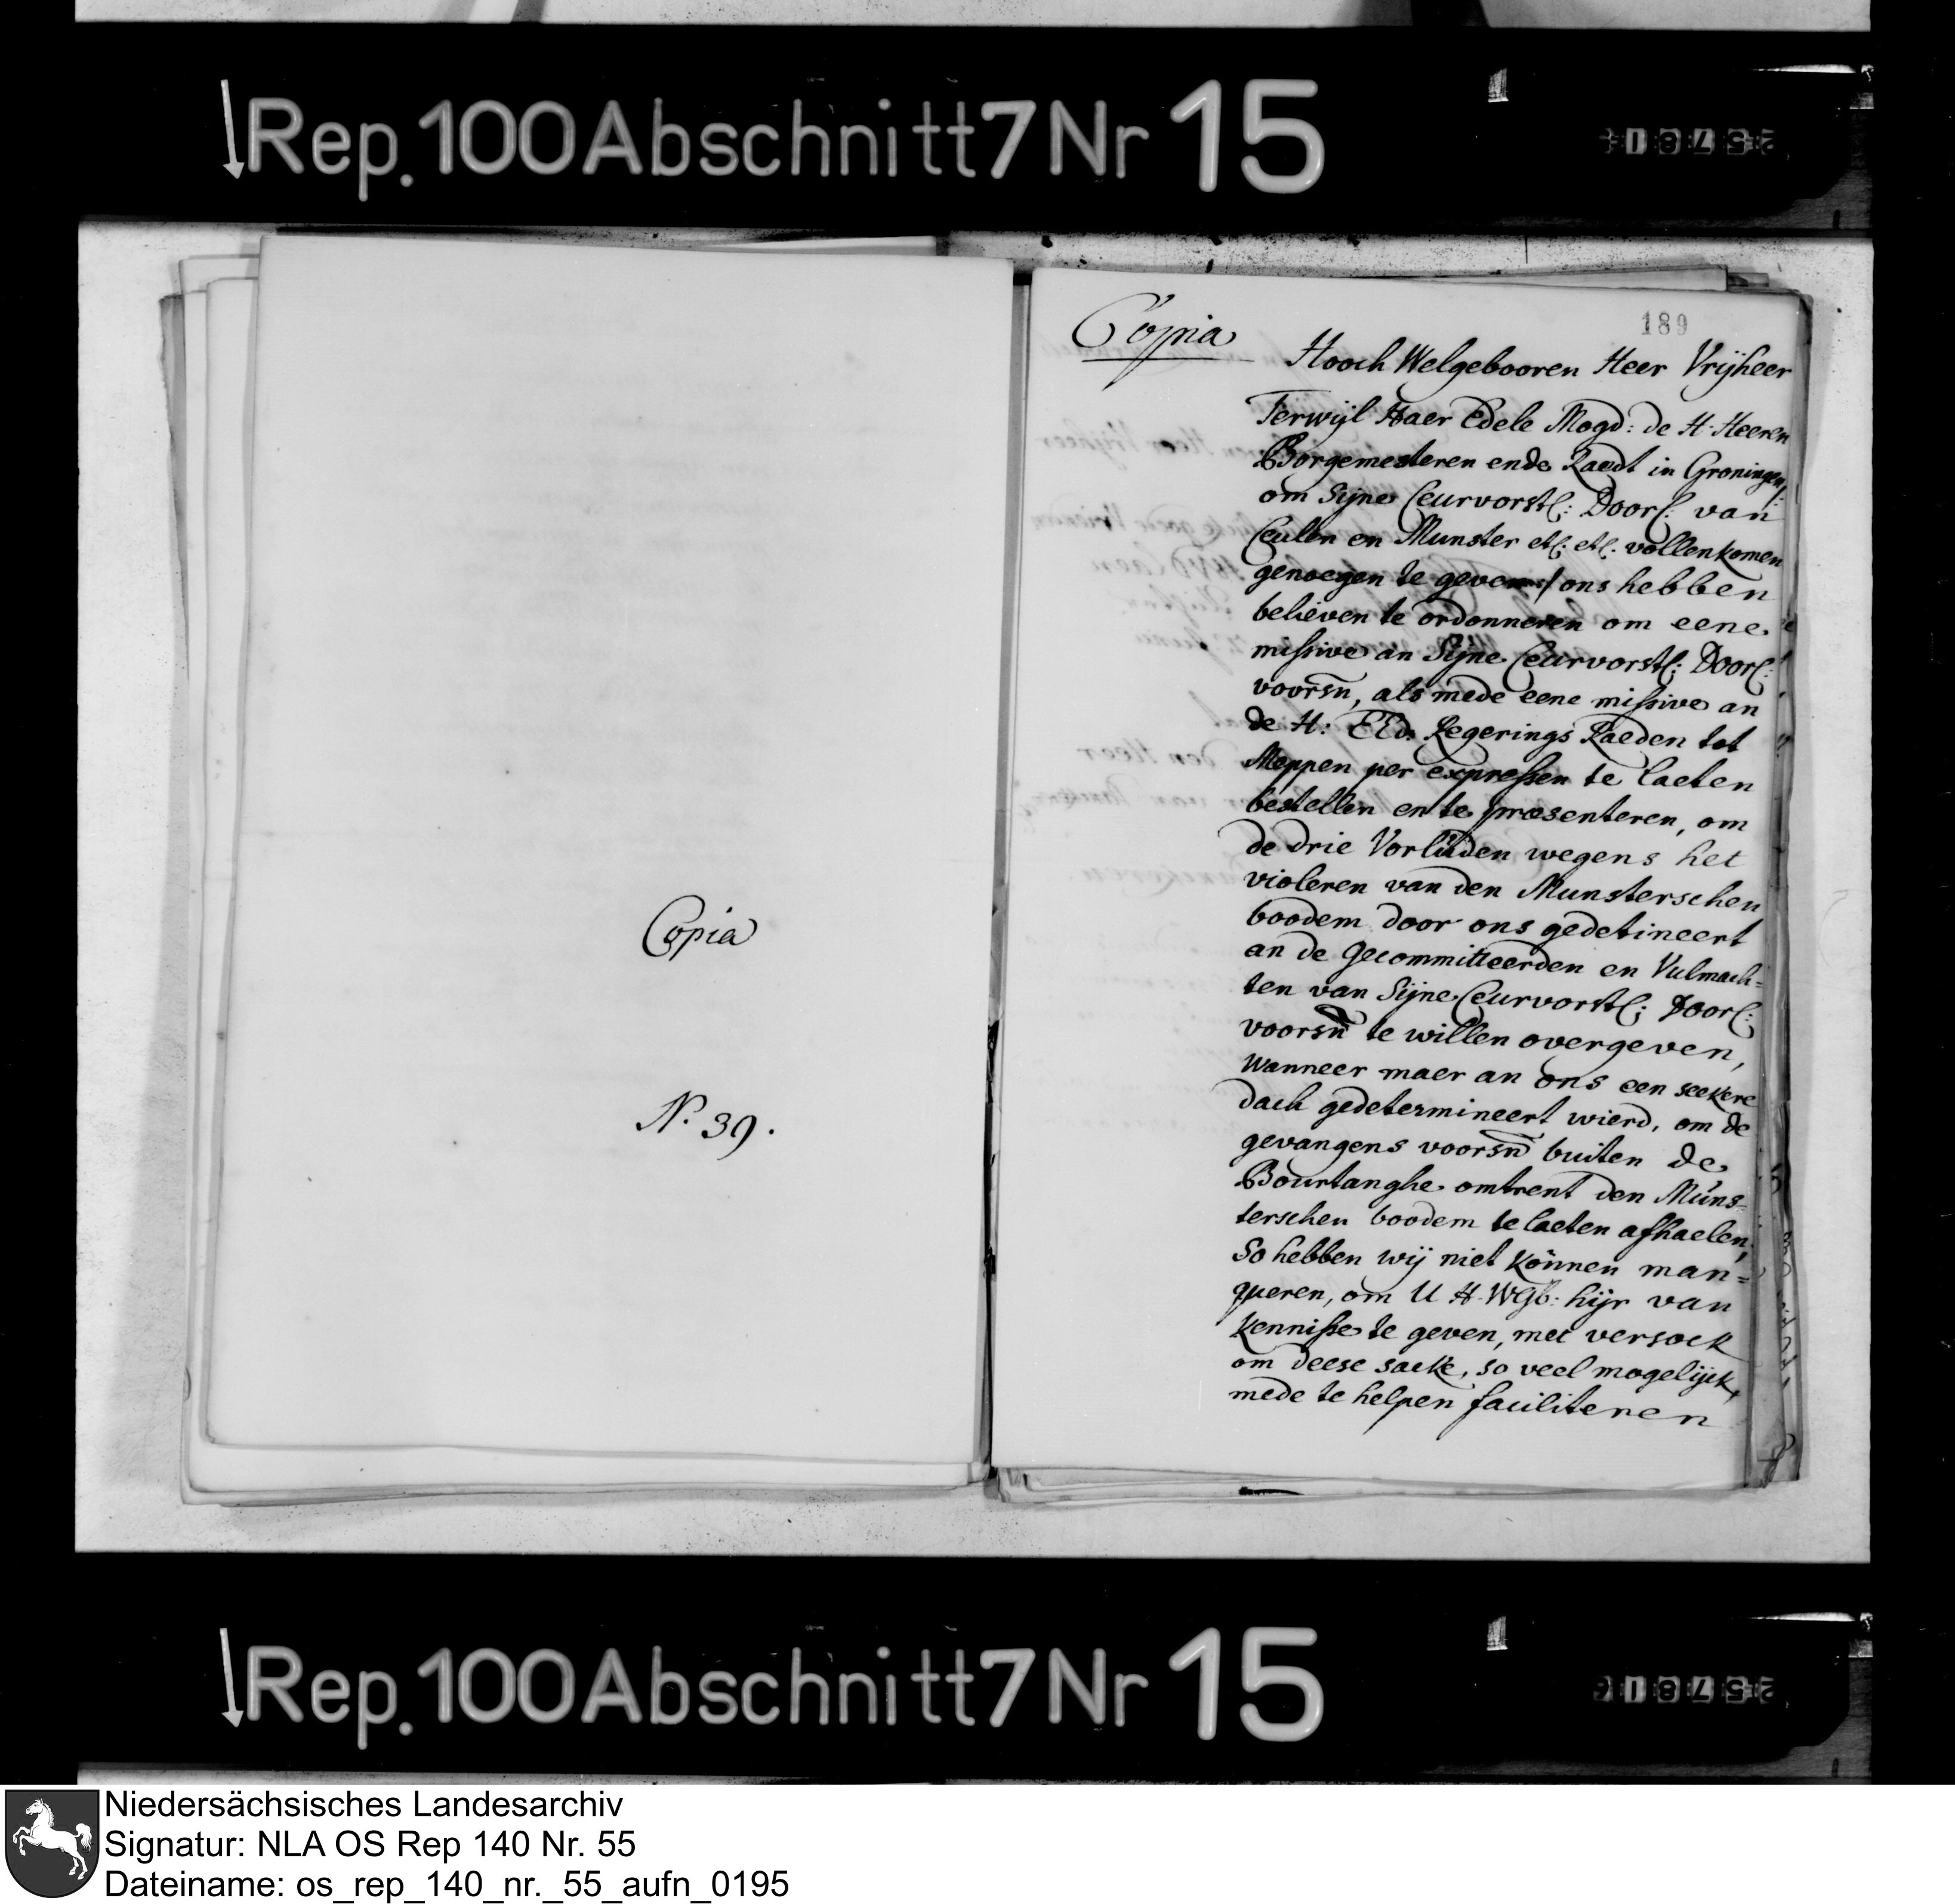 Rep. 100 Abschnitt 7 Nr 15
Copia
N. 39.
189
Copia
Hooch Welgebooren Heer Vrijheer
Terwijl Haer Edele Mogd: de H. Heeren
Borgemesteren ende Raedt in Groningen,
om Sijne Ceurvorstl: Doorl: van
Ceulen en Munster etc: etc: vollenkomen
genoegen te geven / ons hebben
believen te ordonneren om eene
missive an Sijne Ceurvorstl: Doorl:
voorsn, als mede eene missive an
de H: EEd. Regerings Raeden tot
Meppen per expressen te laeten
bestellen en te præsenteren, om
de drie Vorlüden wegens het
violeren van den Munsterschen
boodem door ons gedetineert
an de Gecommitteerden en Vulmach=
ten van Sijne Ceurvorstl: Doorl:
voorsn te willen overgeven,
Wanneer maer an ons een seekere
dach gedetermineert wierd, om de
gevangens voorsn buiten de
Bourtanghe omtrent den Müns-
terschen boodem te laeten afhaelen;
So hebben wij niet können man=
queren, om U H. WGb: hijr van
kennisse te geven, met versoek
om deese sacke, so veel mogelijck,
mede te helpen faciliteren
Rep. 100 Abschnitt 7 Nr 15
Niedersächsisches Landesarchiv
Signatur: NLA OS Rep 140 Nr. 55
Dateiname: os_rep_140_nr._55_aufn_0195